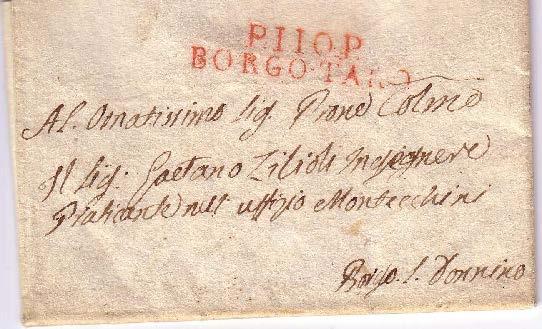 P.110.P.
BORGO-TARO
Al Ornatissimo Sig. Prone Colmo
Il Sig: Gaetano Zilioli Ingegnere
Praticante nell' uffizio Montecchini
Borgo. S. Donnino